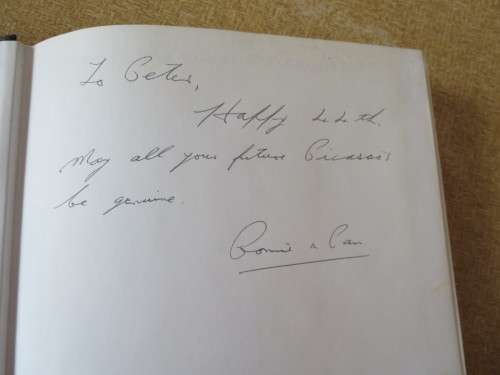 To Peter,
Happy 44th.
May all your future Picasso's
be genuine.
Ronnie & Pam